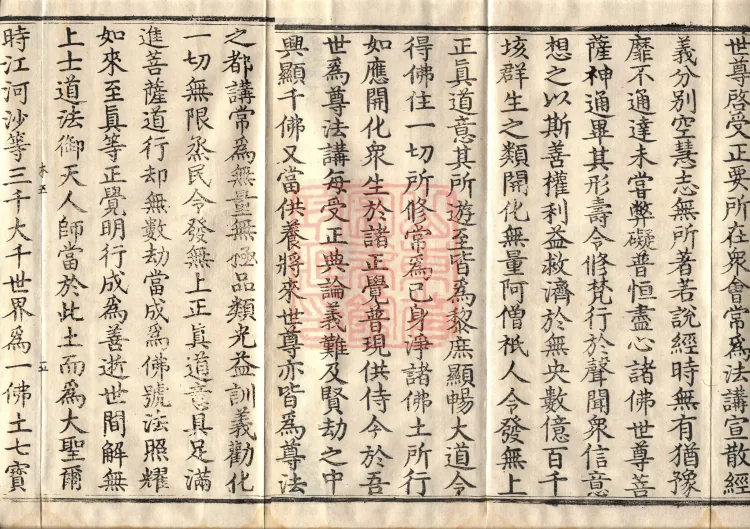 世尊啓受正要所在眾會常為法講宣散經
義分別空慧志無所著若說經時無有猶豫
靡不通達未甞弊礙普恒盡心諸佛世尊菩
薩神通畢其形壽令修梵行於聲聞眾信意
想之以斯善權利益救濟於無央數億百千
垓群生之類開化無量阿僧祇人令發無上
正真道意其所遊至皆為黎庶顯暢大道令
得佛住一切所修常為己身淨諸佛土所行
如應開化眾生於諸正覺普現供侍今於吾
世為尊法講每受正典論義難及賢劫之中
興顯千佛又當供養將來世尊亦皆為尊法
之都講常為無量無極品類光益訓義勸化
一切無限烝民令發無上正真道意具足滿
進菩薩道行却無數劫當成為佛號法照耀
如來至真等正覺明行成為善逝世間解無
上士道法御天人師當於此土而為大聖爾
時江河沙等三千大千世界為一佛土七寶